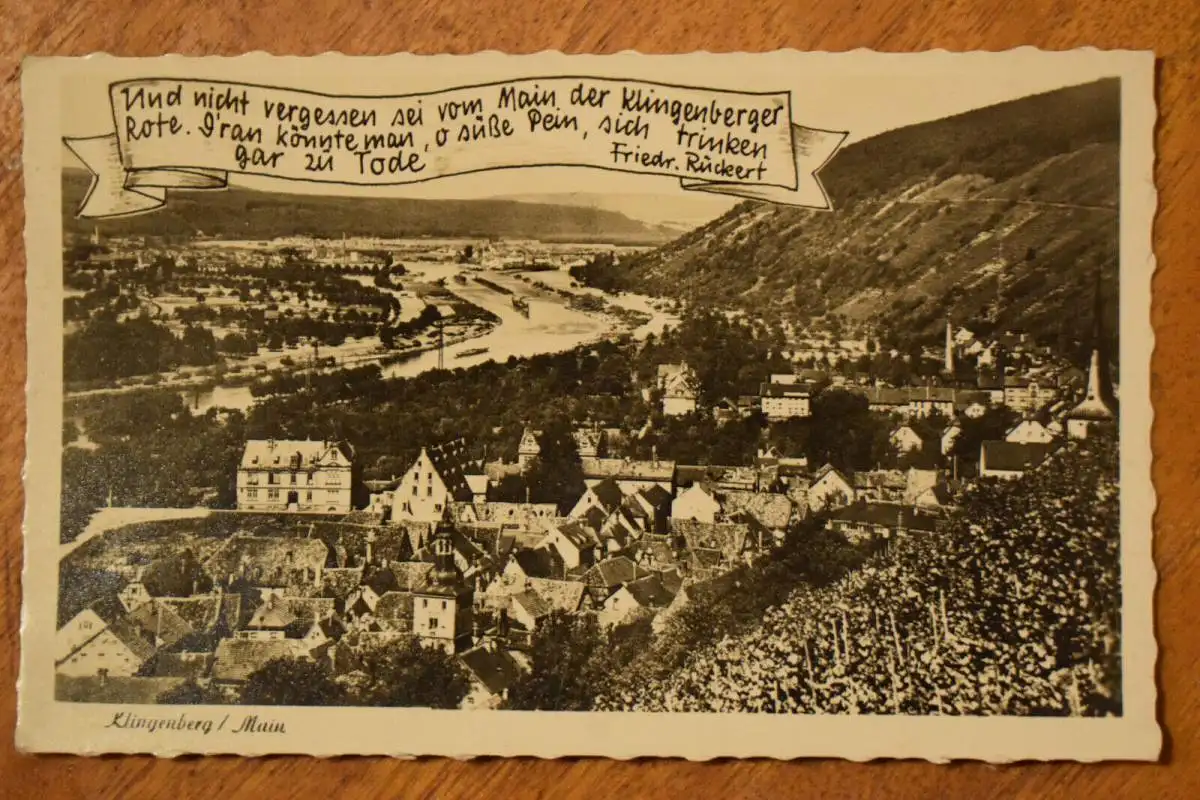 Und nicht vergessen sei vom Main der Klingenberger
Rote. D'ran könnte man, o süße Pein, sich trinken
gar zu Tode
Friedr. Rückert
Klingenberg / Main